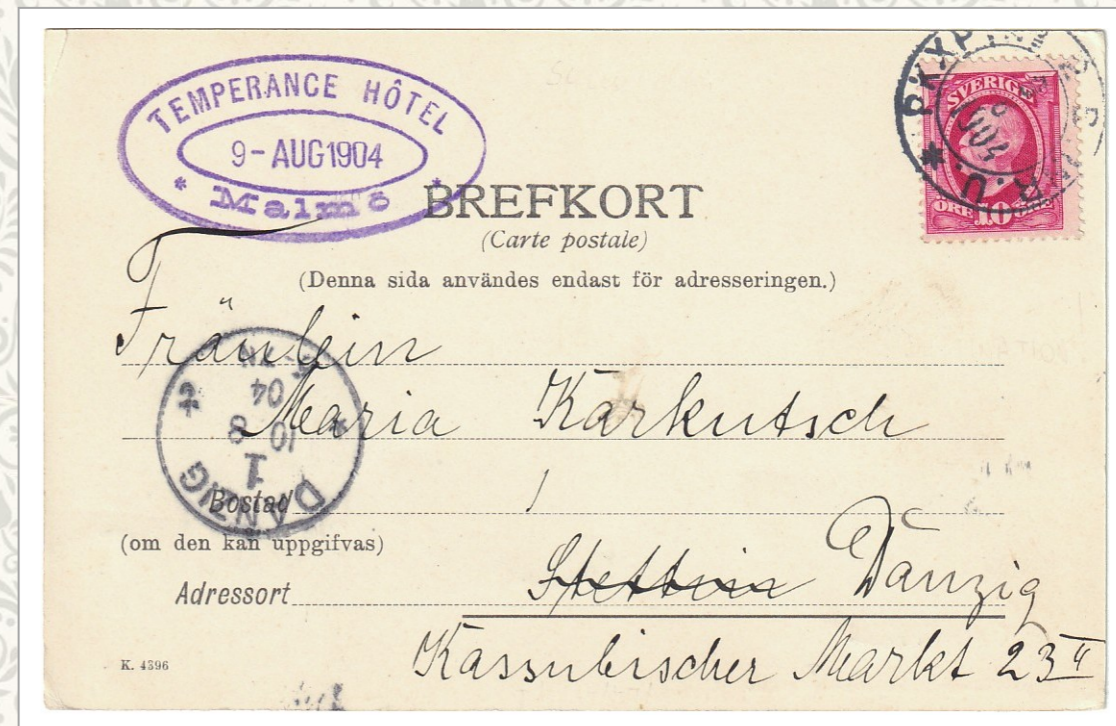 TEMPERANCE HÔTEL
9-AUG1904
* Malmö *
SVERIGE
ÖRE 10 ÖRE
BREFKORT
(Carte postale)
(Denna sida användes endast för adresseringen.)
Fräulein
Maria Karkutsch
DANZIG
1
10 8
04
Bostad
(om den kan uppgifvas)
Adressort Stettin Danzig
Kassubischer Markt 23 II
K. 4396